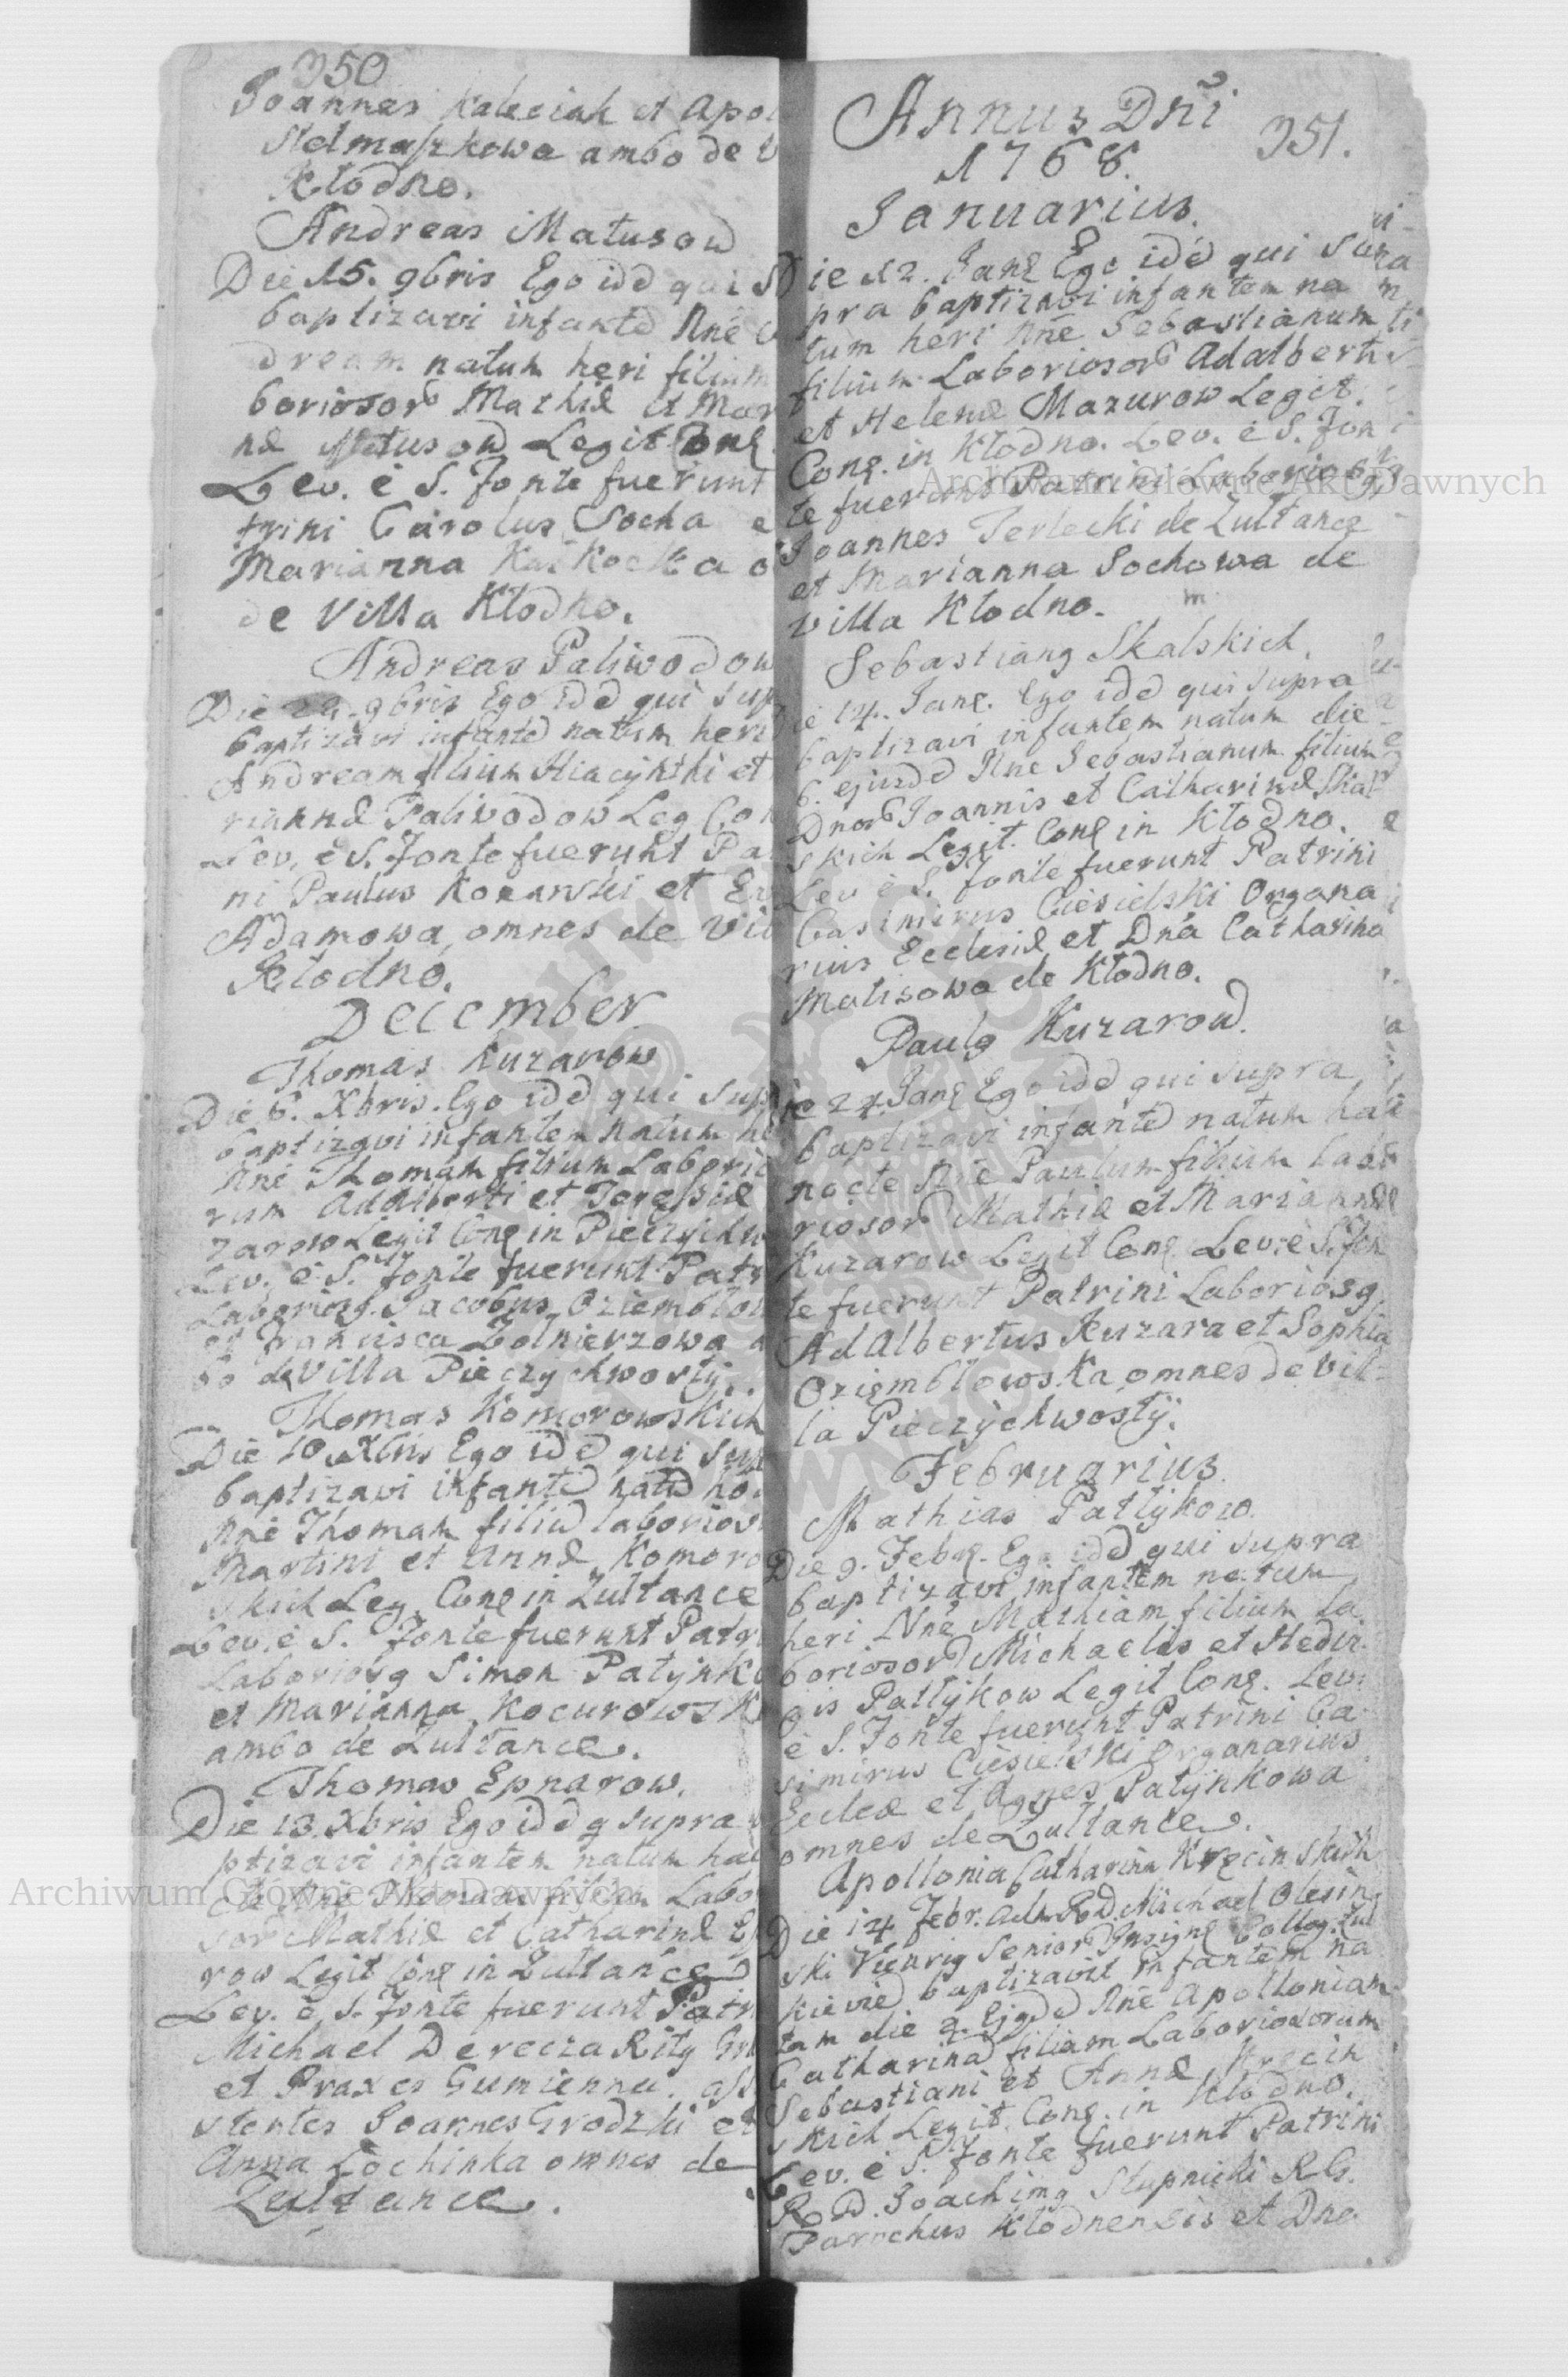 350
Joannes Kaleciak et Apol
Stelmaszkowa ambo de V
Kłodno.
Andreas Matusow
Die 15. 9bris Ego idē qui S
baptizavi infantē Nne
dream natum heri filium
boriosor Mathiæ et Mar
næ Matusow Legit Conę
Lev. è S. Fonte fuerunt
trini Carolus Socha e
Marianna
de Villa Kłodno.
Andreas Paliwodow
Die 9bris Ego idē qui sup
baptizavi infantē natum heri
Andream filium Hiacynthi et
riannæ Paliwodow Leg Con
Lev. è S. Fonte fuerunt Pa
ni Paulus et
Adamowa, omnes de Vil
Kłodno.
December
Thomas Kuzarow
Die 6. Xbris. Ego idē qui sup
baptizavi infantem natum he
Nne Thomam filium Laborio
rum Adalberti et Teressiæ
zarow Legit Conę in Pieczychw
Lev. è S. Fonte fuerunt Patr
Laboriosg Jacobus Oziembłow
et Francisca Zołnierzowa a
bo de Villa Pieczychwosty.
Thomas Komorowskich
Die 10 Xbris Ego idē qui sup
baptizavi infantē natū ho
Nne Thomam filiū laborios
Martini et Annæ Komoro
skich Leg Conę in Zułtance
Lev. è S. Fonte fuerunt Patri
Laboriosg Simon Patynko
et Marianna Kocurowsk
ambo de Zułtance.
Thomas Epnarow.
Die 13 Xbris Ego idē q supra
ptizavi infantem natum hac
cte Nne Thomam filium Labo
sor Mathiæ et Catharinæ Ep
row Legit Conę in Zułtance
Lev. è S. Fonte fuerunt Patri
Michael Derecza Ritg Gr
et Praxes Gumienna. assi
stentes Joannes Grodzki et
Anna Lochinka omnes de
Zułtance.
Annus Dñi 351.
1768.
Januarius.
Die 12. Janę Ego idē qui Su
pra baptizavi infantem na
tum heri Nñe Sebastianum
filium Laboriosor Adalberti
et Helenæ Mazurow Legit.
Conę. in Kłodno. Lev. è S. Fon
te fuerunt Patrini Laboriosg
Joannes Terlecki de Zułtance
et Marianna Sochowa de
Villa Kłodno.
Sebastiang Skalskich.
ie 14. Janę. Ego idē qui supra
baptizavi infantem natum die
6. ejusdē Nne Sebastianum filium
Dnor Joannis et Catharinæ Skal
skich Legit. Conę in Kłodno.
Lev è S. Fonte fuerunt Patrini
Casimirus Ciesielski Organa
rius Ecclesiæ et Dña Catharina
Matisowa de Kłodno.
Paulg Kuzarow.
ie 24. Janę Ego idē qui supra
baptizavi infantē natum hac
nocte Nne Paulum filium labo
riosor Mathiæ et Mariannæ
Kuzarow Legit Conę Lev. è S. Fon
te fuerunt Patrini Laboriosg
Adalbertus Kuzara et Sophia
Oziembłowska omnes de Vil-
la Pieczychwosty.
Februarius.
Mathias Patlykow.
Die 9. Febrę. Ego idē qui supra
baptizavi infantem natum
heri Nñe Mathiam filium La
boriosor Michaelis et Hedvi-
gis Patlykow Legit Conę. Lev.
è S. Fonte fuerunt Patrini Ca-
simirus Ciesielski Organarius
Eccleæ et Agnes Patynkowa
omnes de Zułtance.
Apollonia Catharina Krzecinskich
Die 14 Febr. Adm R. D. Michael Olesin
ski Vicarig Senior Insignę Colleg. Zuł
kieviē baptizavit infantem na
tam die 9. Ejgdē Nne Apolloniam
Catharinā filiam Laboriosorum
Sebastiani et Annæ Krzecin
skich Legit. Conę. in Kłodno.
Lev. è S. Fonte fuerunt Patrini
R. D. Joachimg Stupnicki R. G.
Parochus Kłodnensis et Dna
Archiwum Główne Akt Dawnych
Archiwum Główne Akt Dawnych